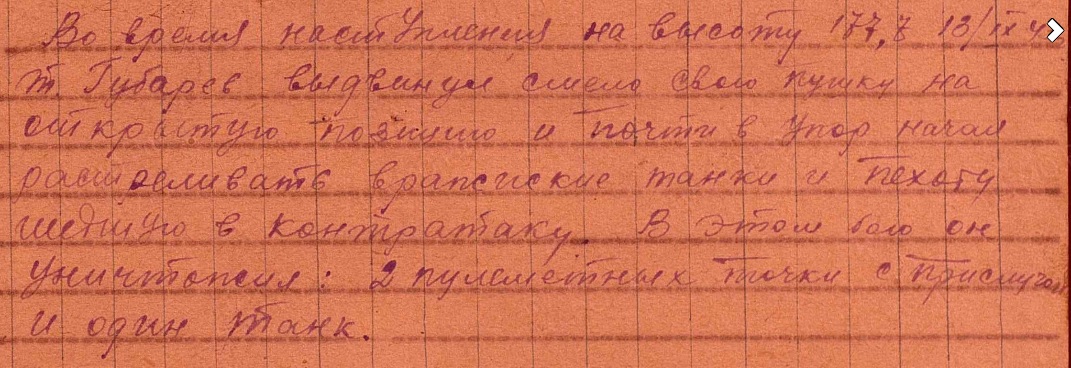 Во время наступления на высоту 177,7 13/IX 4
т. Губарев выдвинул смело свою пушку на
открытую позицию и почти в упор начал
расстреливать вражеские танки и пехоту
шедшую в контратаку. В этом бою он
уничтожил: 2 пулеметных точки с прислугой
и один танк.